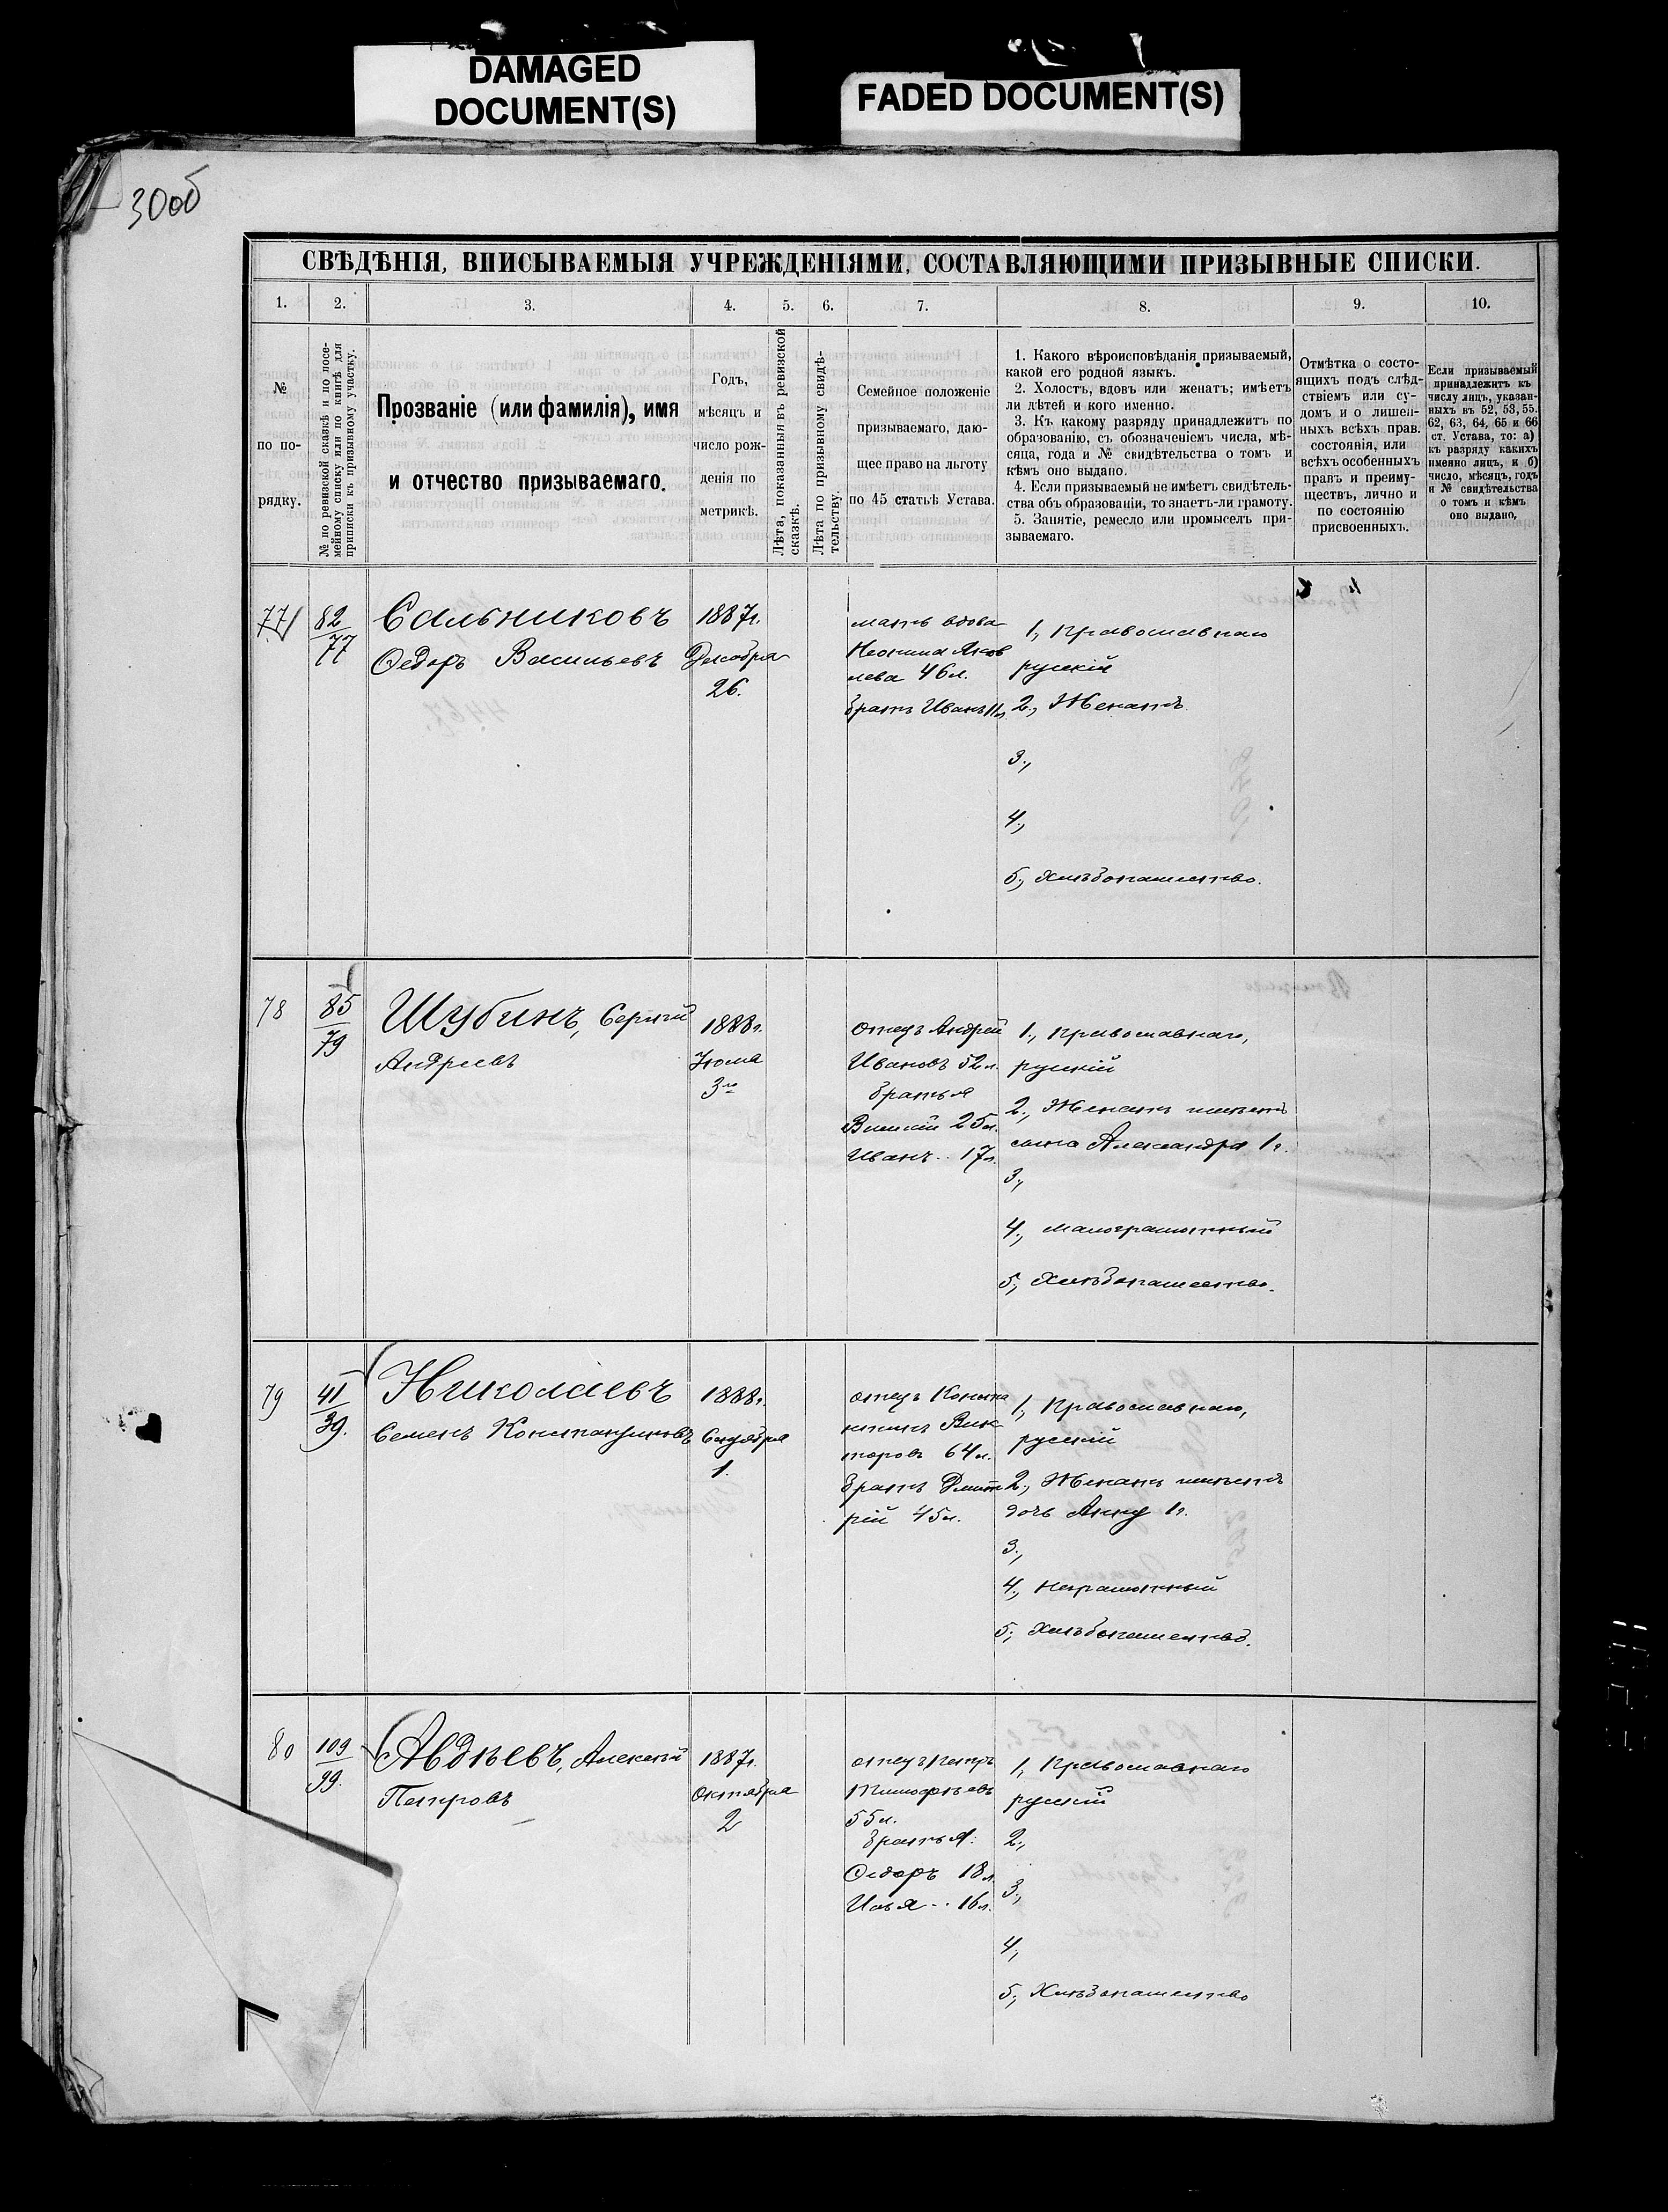 DAMAGED
DOCUMENT(S)
FADED DOCUMENT(S)
30об
СВѢДѢНІЯ, ВПИСЫВАЕМЫЯ УЧРЕЖДЕНІЯМИ, СОСТАВЛЯЮЩИМИ ПРИЗЫВНЫЕ СПИСКИ.
1. 2. 3. 4. 5. 6. 7. 8. 9. 10.
№
по по-
рядку.
№ по ревизской сказкѣ и по посе-
мейному списку или по книгѣ для
приписки къ призывному участку.
Прозваніе (или фамилія), имя
и отчество призываемаго.
Годъ,
мѣсяцъ и
число рож-
денія по
метрикѣ.
Лѣта, показанныя въ ревизской
сказкѣ.
Лѣта по призывному свидѣ-
тельству.
Семейное положеніе
призываемаго, даю-
щее право на льготу
по 45 статьѣ Устава.
1. Какого вѣроисповѣданія призываемый,
какой его родной языкъ.
2. Холостъ, вдовъ или женатъ; имѣетъ
ли дѣтей и кого именно.
3. Къ какому разряду принадлежитъ по
образованію, съ обозначеніемъ числа, мѣ-
сяца, года и № свидѣтельства о томъ и
кѣмъ оно выдано.
4. Если призываемый не имѣетъ свидѣтель-
ства объ образованіи, то знаетъ-ли грамоту.
5. Занятіе, ремесло или промыселъ при-
зываемаго.
Отмѣтка о состо-
ящихъ подъ слѣд-
ствіемъ или су-
домъ и о лишен-
ныхъ всѣхъ прав.
состоянія, или
всѣхъ особенныхъ
правъ и преиму-
ществъ, лично и
по состоянію
присвоенныхъ.
Если призываемый
принадлежитъ къ
числу лицъ, указан-
ныхъ въ 52, 53, 55.
62, 63, 64, 65 и 66
ст. Устава, то: а)
къ разряду какихъ
именно лицъ, и б)
число, мѣсяцъ, годъ
и № свидѣтельства
о томъ и кѣмъ
оно выдано,
77
82
77
Сальниковъ
Ѳедоръ Васильевъ
1887г.
Декабря
26.
мать вдова
Яков
лева 46л.
братъ Иванъ 11л.
1., Православнаго
русскій
2., Женатъ
3.,
4.,
5., Хлѣбопашество.
78
85
79
Шубинъ, Сергѣй
Андреевъ
1888г.
Іюля
3го
отецъ Андрей
Ивановъ 52л.
братья
25л.
Иванъ.. 17л.
1., Православнаго,
русскій
2., Женатъ имѣетъ
сына Александра 1г.
3.,
4., малограмотный
5., Хлѣбопашество.
79
41
39.
Николаевъ
Семенъ Константиновъ
1888г.
Сентября
1.
отецъ Конста
нтинъ Вик
торовъ 64л.
братъ Дмит
рій 45л.
1., Православнаго,
русскій
2., Женатъ имѣетъ
дочь Анну 1г.
3.,
4., неграмотный
5., Хлѣбопашество.
80
109
99.
Авдѣевъ, Алексѣй
Петровъ
1887г.
Октября
2
отецъ Петръ
Тимофѣевъ
55л.
братья:
Ѳедоръ 18л.
Илья .. 16л.
1., Православнаго
русскій
2.,
3.,
4.,
5., Хлѣбопашество